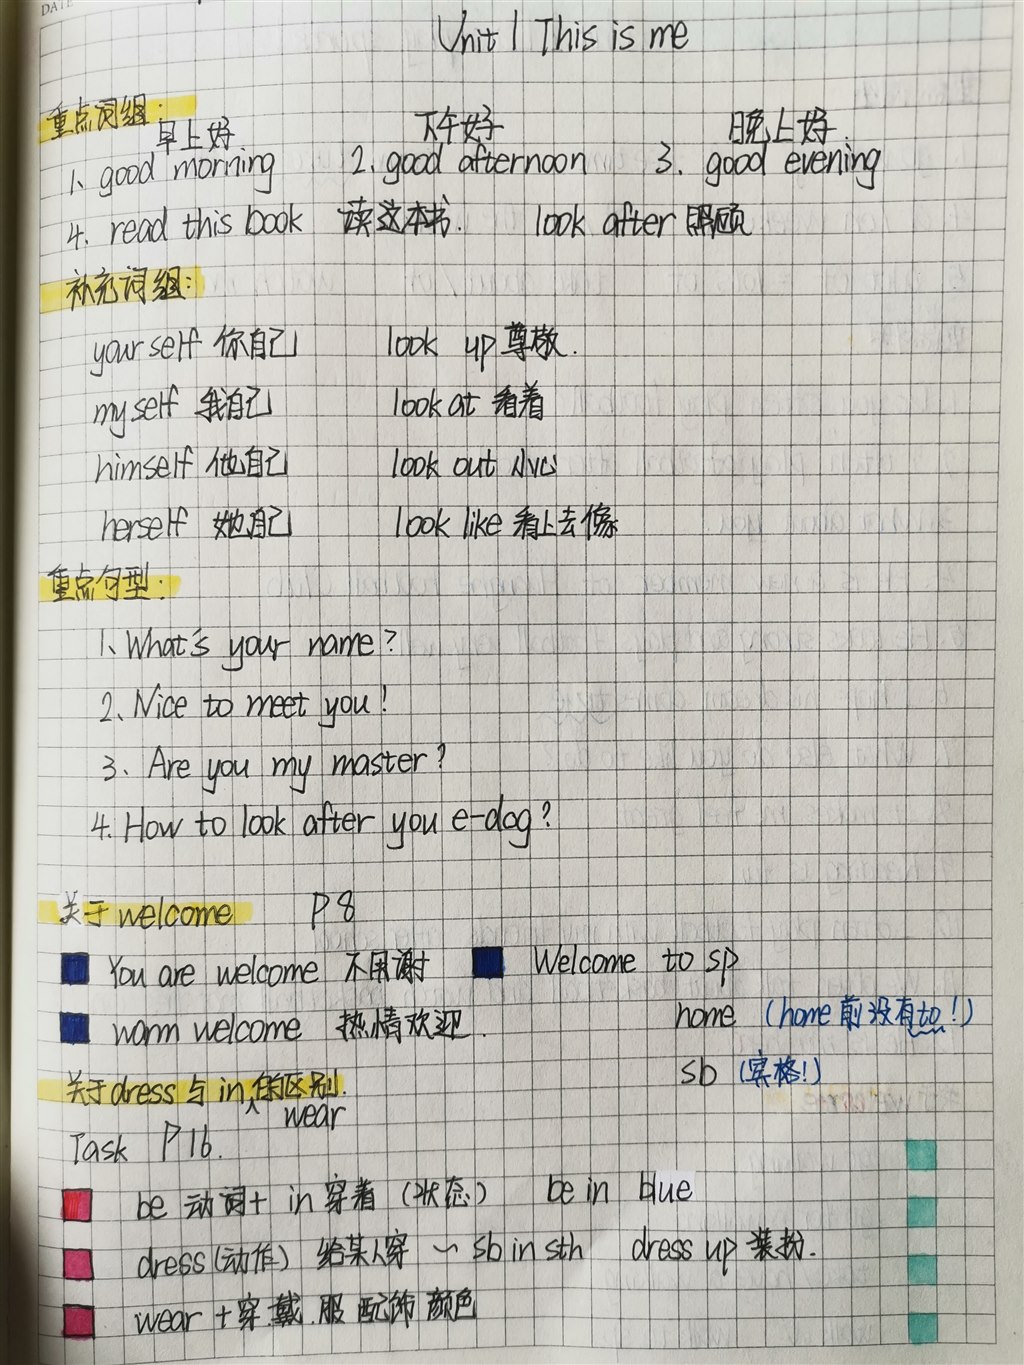 DATE
Unit 1 This is me
重点词组:
早上好 下午好 晚上好.
1、good morning 2、good afternoon 3. good evening
4. read this book 读这本书. look after 照顾
补充词组:
yourself 你自己 look up 尊敬.
myself 我自己 look at 看着
himself 他自己 look out 小心
herself 她自己 look like 看上去像
重点句型:
1、What's your name?
2、Nice to meet you!
3、Are you my master?
4. How to look after you e-dog?
关于welcome P8
You are welcome 不用谢 Welcome to sp
warm welcome 热情欢迎. home (home前没有to!)
sb (宾格!)
关于dress与in的区别.
wear
Task P16.
be 动词+ in 穿着 (状态) be in blue
dress(动作) 给某人穿 ~ sb in sth dress up 装扮.
wear + 穿.戴.服 配饰 颜色